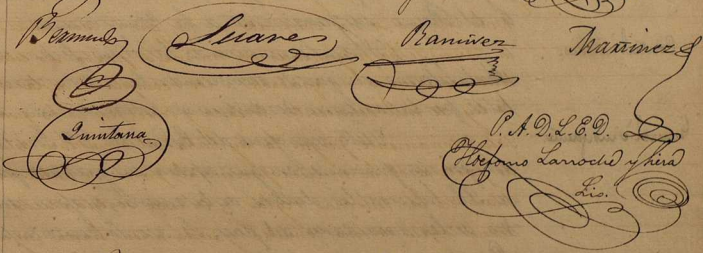 Bermudez Suarez Ramirez Martinez
Quintana
P. A. D. L. E. D.
Ildefonso Larroche y Siera
Lic.